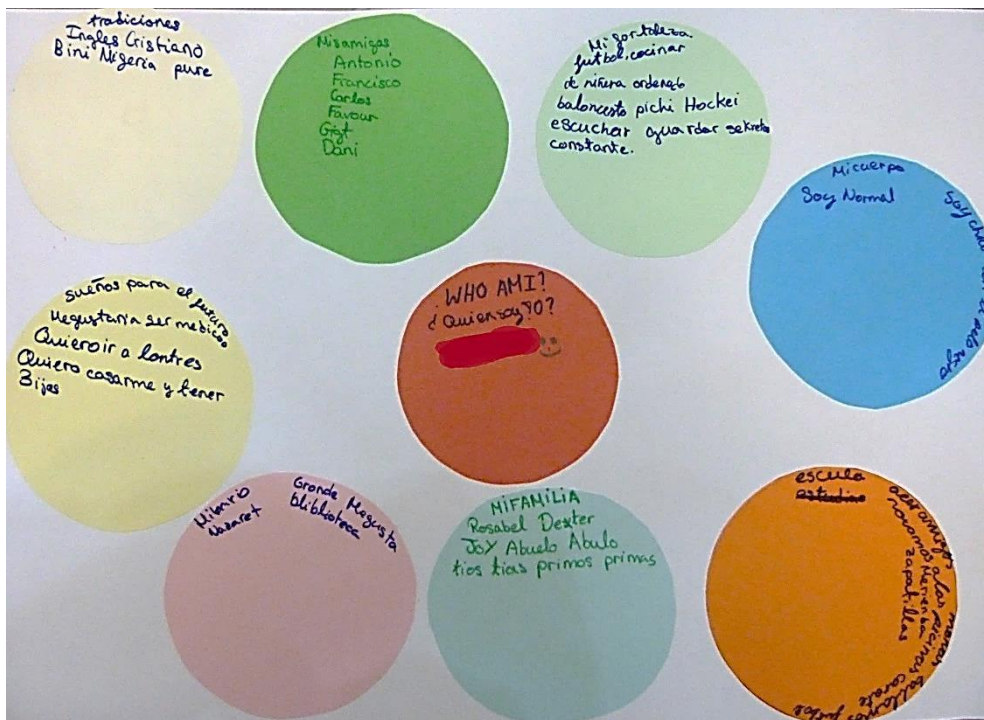 tradiciones
Ingles Cristiano
Bini Nigeria pure
Misamigas
Antonio
Francisco
Carlos
Favour
Gigt
Dani
Mi fortaleza
futbol, cocinar
de niñera ordenado
baloncesto pichi Hockei
escuchar guardar sekreto
constante.
Micuerpo
Soy Normal
Soy
el pelo
sueños para el futuro
Megustaria ser medicoo
Quieroir a lontres
Quiero casarme y tener
3ijas
WHO AMI?
¿Quiensoy YO?
Mibario
Nazaret
Grande Megusta
bliblioteca
MIFAMILIA
Rosabel Dexter
JoY Abuelo Abulo
tios tias primos primas
escula
alas picinas
Merienda
zapatillas